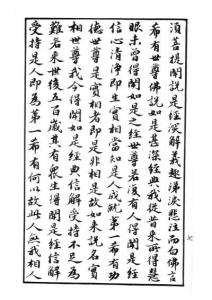 須菩提聞說是經深解義趣涕淚悲泣而白佛言
希有世尊佛說如是甚深經典我從昔來所得慧
眼未曾得聞如是之經世尊若復有人得聞是經
信心清淨即生實相當知是人成就第一希有功
德世尊是實相者即是非相是故如來說名實
相世尊我今得聞如是經典信解受持不足為
難若來世後五百歲其有眾生得聞是經信解
受持是人即為第一希有何以故此人無我相人
七